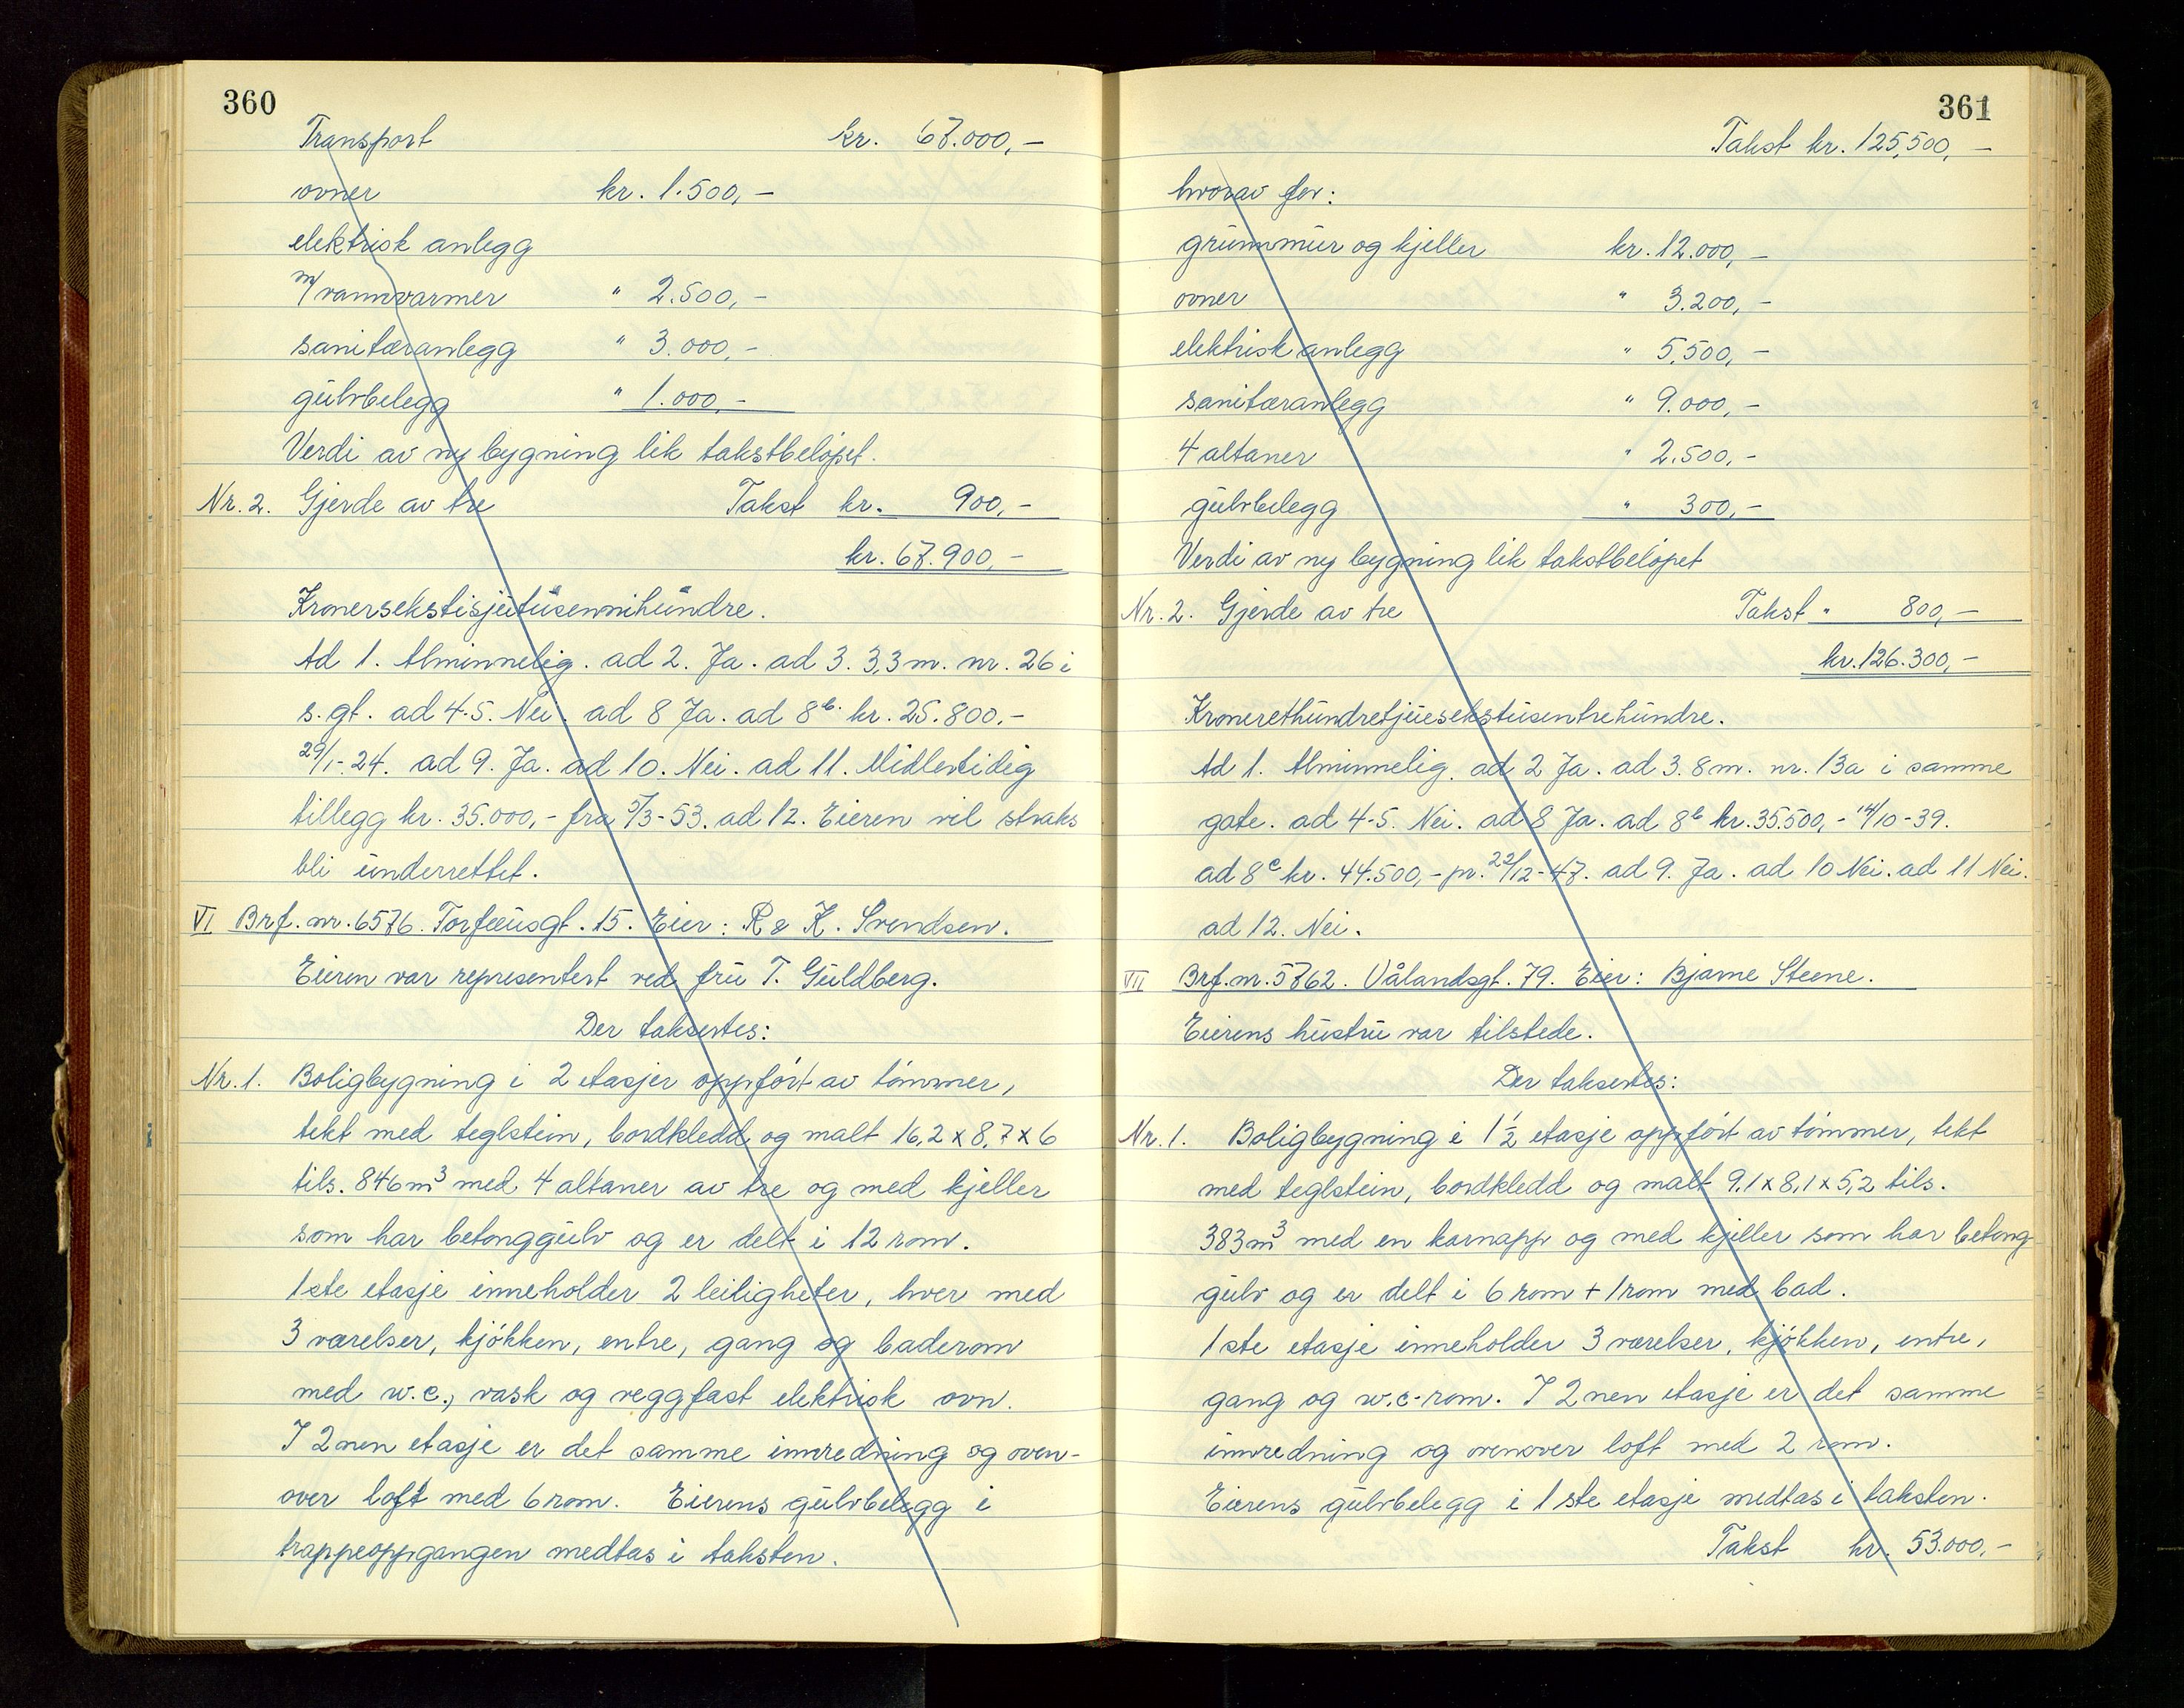 360
Transport kr. 67.000,-
ovner kr. 1.500,-
elektrisk anlegg
m/vannvarmer " 2.500,-
sanitæranlegg " 3.000,-
gulvbelegg " 1.000,-
Verdi av ny bygning lik takstbeløpet.
Nr. 2. Gjerde av tre Takst kr. 900,-
kr. 67.900,-
Kronersekstisjutusennihundre.
Ad 1. Alminnelig. ad 2. Ja. ad 3. 3,3 m. nr. 26 i
s. gt. ad 4-5. Nei. ad 8 Ja. ad 8b. kr. 25.800.-
29/1-24. ad 9. Ja. ad 10. Nei. ad 11. Midlertidig
tillegg kr. 35.000,- fra 5/3-53. ad 12. Eieren vil straks
bli underrettet.
VI Brf. nr. 6576. Torfæusgt. 15. Eier: R & K. Svendsen.
Eieren var representert ved fru T. Guldberg.
Der taksertes:
Nr. 1. Boligbygning i 2 etasjer oppført av tømmer,
tekt med teglstein, bordkledd og malt 16,2 x 8,7 x 6
tils. 846 m³ med 4 altaner av tre og med kjeller
som har betonggulv og er delt i 12 rom.
1ste etasje inneholder 2 leiligheter, hver med
3 værelser, kjøkken, entre, gang og baderom
med w.c., vask og veggfast elektrisk ovn.
I 2nen etasje er det samme innredning og oven-
over loft med 6 rom. Eierens gulvbelegg i
trappeoppgangen medtas i taksten.
361
Takst kr. 125.500,-
hvorav for:
grunnmur og kjeller kr. 12.000,-
ovner " 3.200,-
elektrisk anlegg " 5.500,-
sanitæranlegg " 9.000,-
4 altaner " 2.500,-
gulvbelegg " 300,-
Verdi av ny bygning lik takstbeløpet
Nr. 2. Gjerde av tre Takst " 800,-
kr. 126.300,-
Kronerethundretjuesekstusentrehundre.
Ad 1. Alminnelig. ad 2 Ja. ad 3. 8 m. nr. 13a i samme
gate. ad 4-5. Nei. ad 8 Ja. ad 8b kr. 35.500,- 14/10-39.
ad 8c kr. 44.500,- pr. 22/12-47. ad 9. Ja. ad 10 Nei. ad 11 Nei.
ad 12. Nei.
VII Brf. nr. 5762. Vålandsgt. 79. Eier: Bjarne Steene.
Eierens hustru var tilstede.
Der taksertes:
Nr. 1. Boligbygning i 1 1/2 etasje oppført av tømmer, tekt
med teglstein, bordkledd og malt 9,1 x 8,1 x 5,2 tils.
383 m³ med en karnapp og med kjeller som har betong
gulv og er delt i 6 rom + 1 rom med bad.
1ste etasje inneholder 3 værelser, kjøkken, entre,
gang og w.c-rom. I 2nen etasje er det samme
innredning og ovenover loft med 2 rom.
Eierens gulvbelegg i 1ste etasje medtas i taksten.
Takst kr. 53.000,-